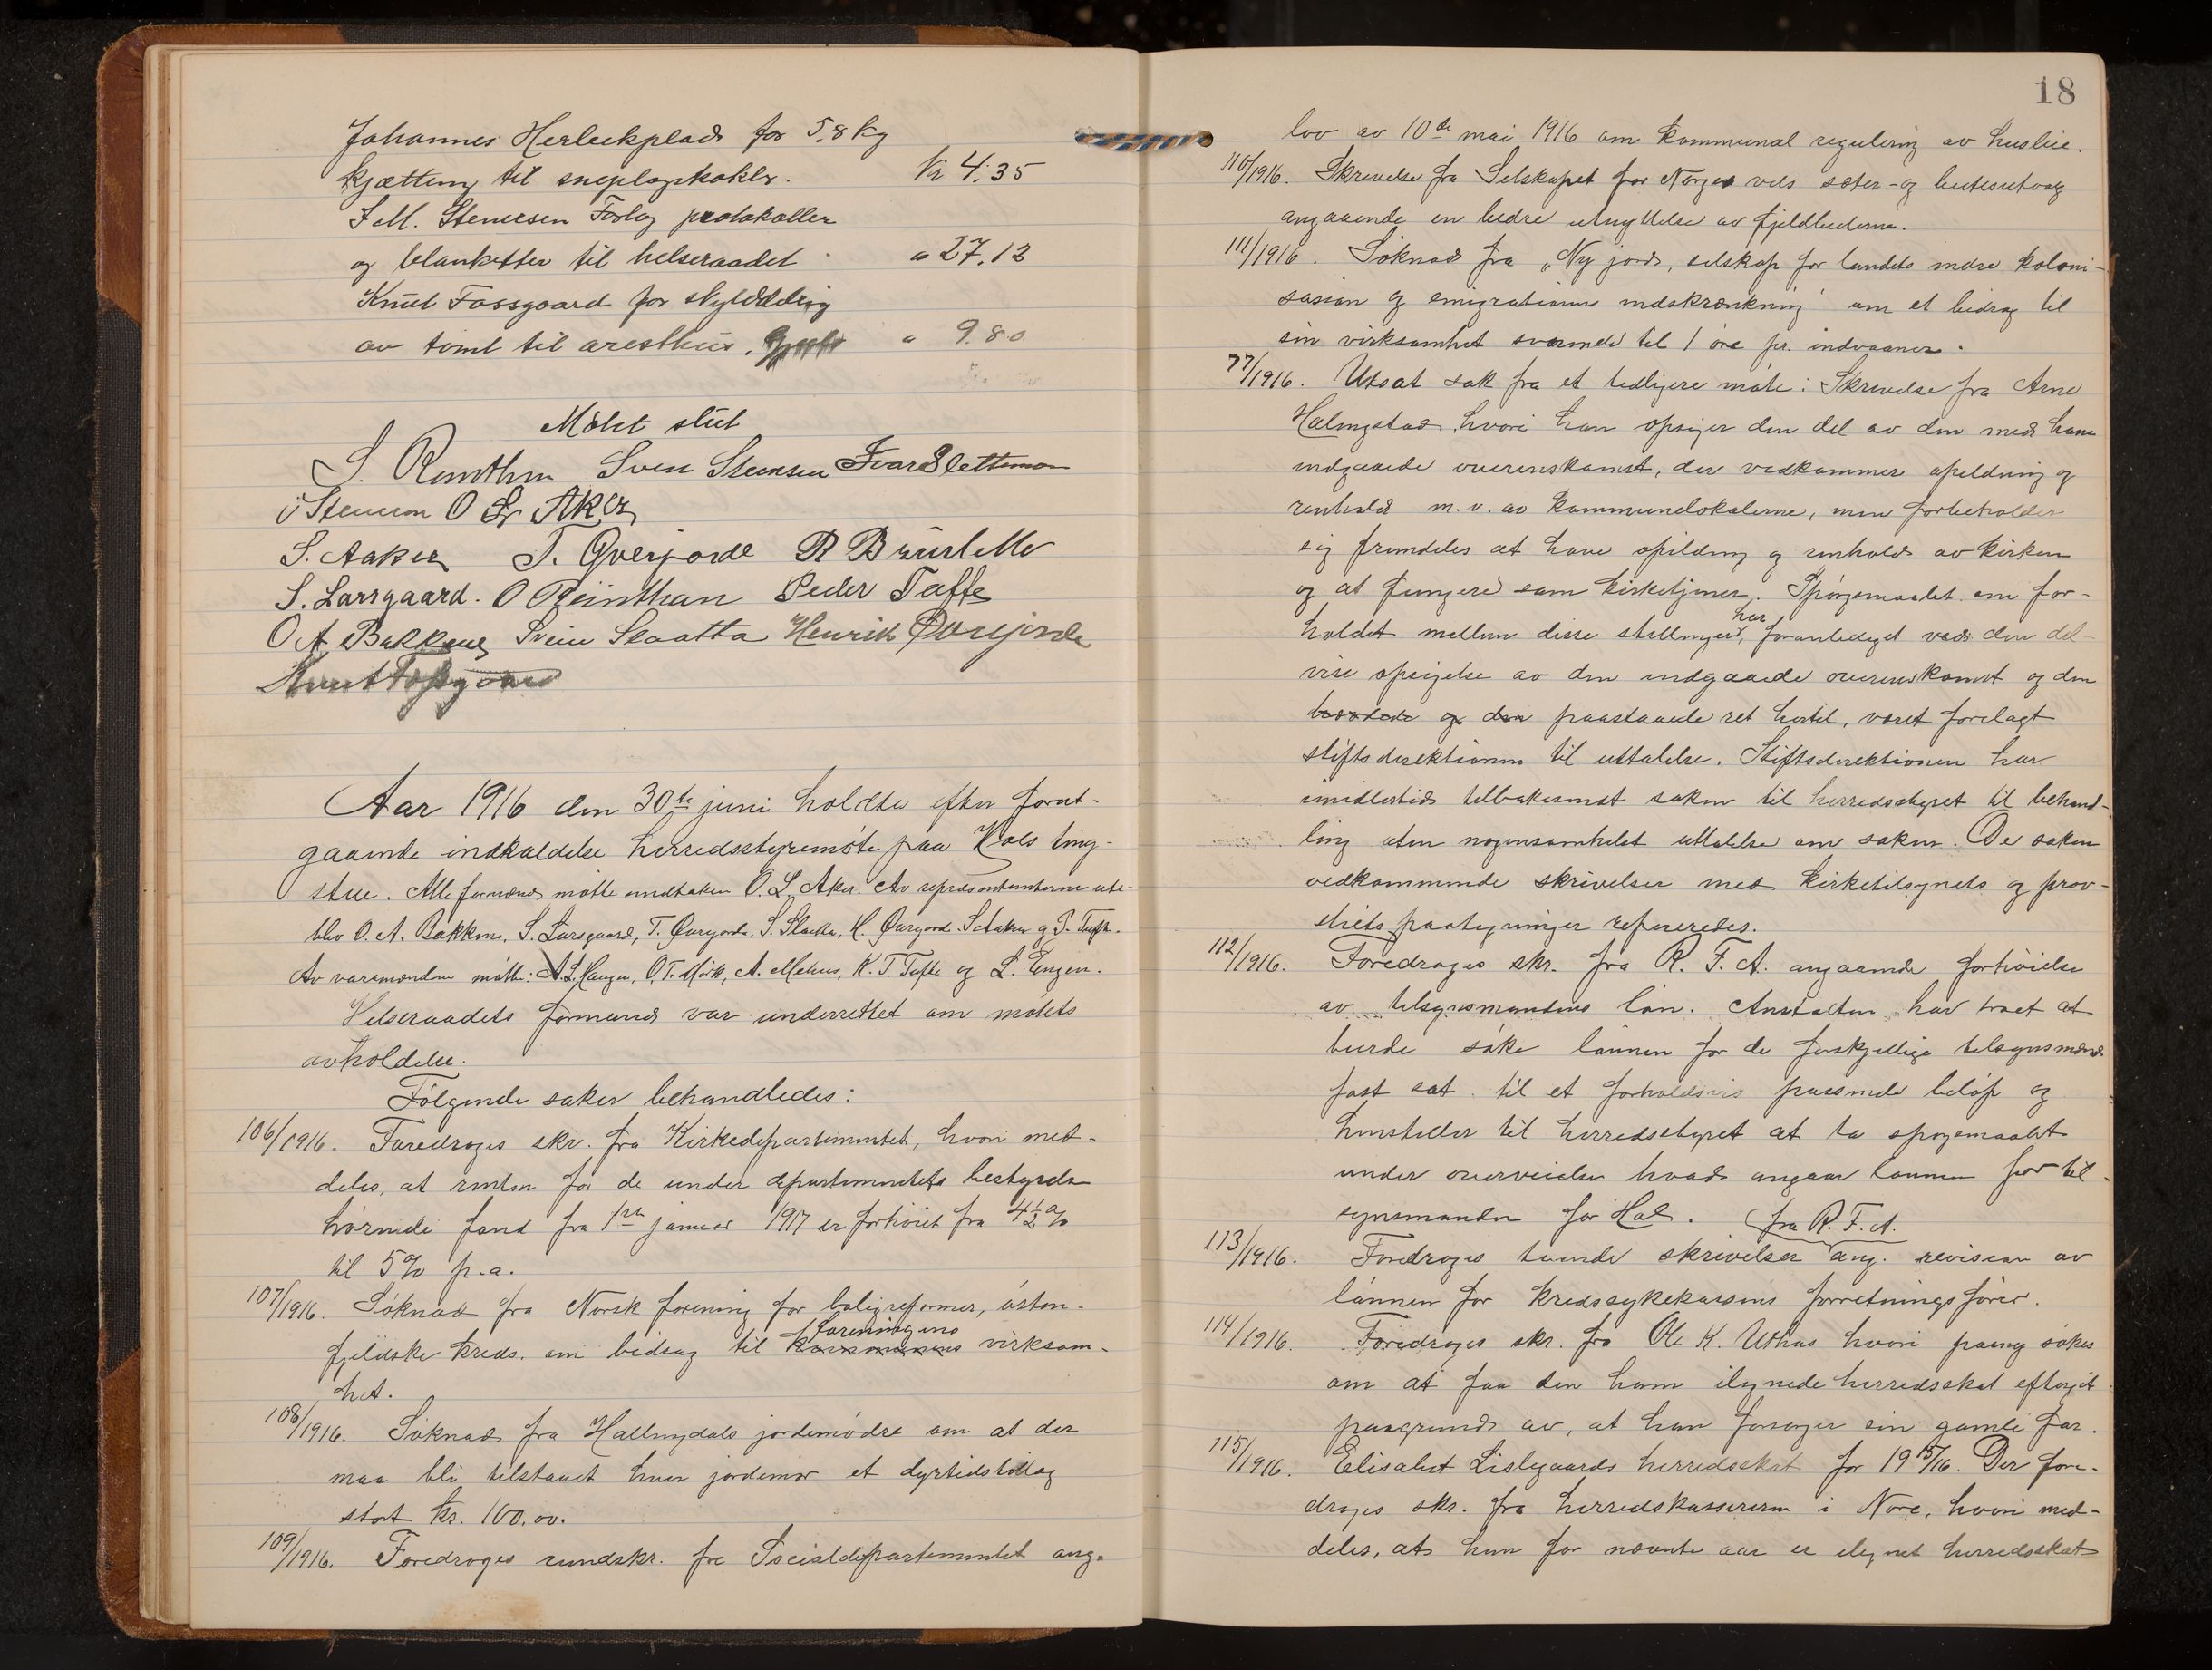 Johannes Herleikplads for 5.8 kg
kjætting til sneplogskokler. Kr 4.35
J. M. Stenersen Forlag protokoller
og blanketter til helseraadet " 27.12
Knut Fossgaard for skylddeling
av tomt til aresthus. " 9.80
Møtet slut
S. Svein Stensen Ivar Slettemoen
Stensen O L Aker
S. Aaker T. Qverjorde R Brustelle
S. Larsgaard. O Peder Tufte
O A Bakken Svein Slaatta Henrik Qverjorde
Knut Fossgaard
Aar 1916 den 30te juni holdtes efter forut-
gaaende indkaldelse herredsstyremøte paa Hols ting-
stue. Alle formænd møtte undtaken O. L. Aker. Av repræsentanterne ute-
blev O. A. Bakken, S. Larsgaard, T. Qverjorde, S. Slaatta, H. Qverjord. S Aaker og P. Tufte.
Av varamændene møtte: A. L. Haugen, O. T. Moik, A. Mehus, K. T. Tufte og L. Eengen.
Helseraadets formand var underrettet om møtets
avholdelse.
Følgende saker behandledes:
106/1916. Foredroges skr. fra Kirkedepartementet, hvori med-
deles, at renten for de under departementets bestyrelse
hørende fond fra 1ste januar 1917 er forhøiet fra 4½ %
til 5% p.a.
107/1916. Søknad fra Norsk forening for boligreformer, østen-
fjeldske kreds. om bidrag til kommunens foreningens virksom-
het.
108/1916. Søknad fra Hallingdals jordemødre om at der
maa bli tilstaaet hver jordemor et dyrtidstillæg
stort kr. 100.00.
109/1916. Foredroges rundskr. fra Socialdepartementet ang.
18
lov av 10de mai 1916 om kommunal regulering av husleie.
110/1916. Skrivelse fra Selskapet for Norges vels sæter- og beitesutvalg
angaaende en bedre utnyttelse av fjeldbeiterne.
111/1916. Søknad fra "Ny jord, selskap for landets indre koloni-
sasion og emigrationens indskrænkning" om et bidrag til
sin virksomhet svarende til 1 øre pr. indvaaner.
77/1916. Utsat sak fra et tidligere møte: Skrivelse fra Arne
Halingstad, hvori han opsiger den del av den med ham
indgaaede overenskomst, der vedkommer opeldning og
renhold m. v. av kommunelokalerne, men forbeholder
sig fremdeles at have opildning og renhold av kirken
og at fungere som kirketjener. Spørgsmaalet om for-
holdet mellem disse stillinger, har foranlediget ved den del-
vise opsigelse av den indgaaede overenskomst og den
og den paastaaede ret hertil, været forelagt
stiftsdirektionen til uttalelse. Stiftsdirektionen har
imidlertid tilbakesendt saken til herredsstyret til behand-
ling uten nogensomhelst uttalelse om saken. De saken
vedkommende skrivelser med kirketilsynets og prov-
stiets paategninger refereredes.
112/1916. Foredroges skr. fra R. F. A. angaaende forhøielse
av tilsynsmandens løn. Anstalten har troet at
burde søke lønnen for de forskjellige tilsynsmænd
fast sat til et forholdsvis passende beløp og
henstiller til herredsstyret at ta spørgsmaalet
under overveielse hvad angaar lønnen for til-
synsmanden for Hol.
113/1916. Foredroges tvende skrivelser fra R. F. A. ang. revision av
lønnen for kredssykekassens forretningsfører.
114/1916. Foredroges skr. fra Ole K. Uthus hvori paany søkes
om at faa den ham ilignede herredsskat eftergit
paagrund av, at han forsørger sin gamle far.
115/1916. Elisabet Lislegaards herredsskat for 1915/16. Der fore-
droges skr. fra herredskassereren i Nore, hvori med-
deles, at hun for nævnte aar er ilignet herredsskat